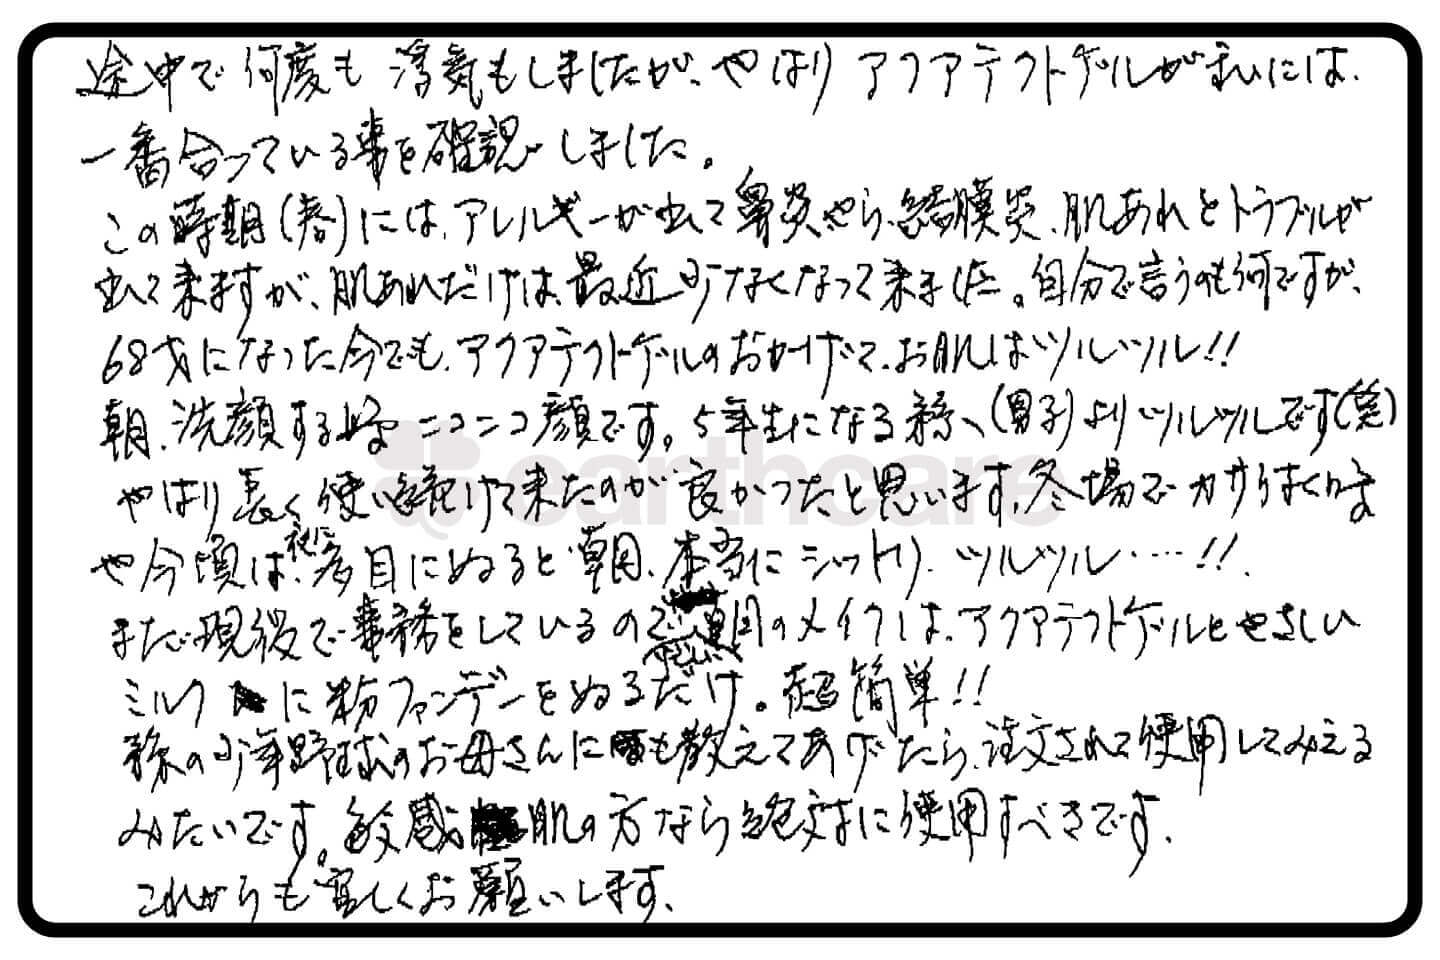 途中で何度も浮気もしましたが、やはりアクアテクトゲルが私には、
一番合っている事を確認しました。
この時期(春)には、アレルギーが出て鼻炎やら、結膜炎、肌あれとトラブルが
出て来ますが、肌あれだけは、最近少なくなって来ました。自分で言うのも何ですが、
68才になった今でも、アクアテクトゲルのおかげで、お肌はツルツル!!
朝、洗顔する時ニコニコ顔です。5年生になる孫、(男子)よりツルツルです(笑)
やはり長く使い続けて来たのが良かったと思います。冬場でカサつく時
や今頃は、夜に多目にぬると朝、本当にシットリ、ツルツル……!!
まだ現役で事務をしているので朝のメイクは、アクアテクトゲルとやさしい
ミルクに粉ファンデーをぬるだけ。超簡単!!
孫の少年野球のお母さんにも教えてあげたら、注文されて使用してみえる
みたいです。敏感肌の方なら絶対に使用すべきです。
これからも宜しくお願いします。
earthcare